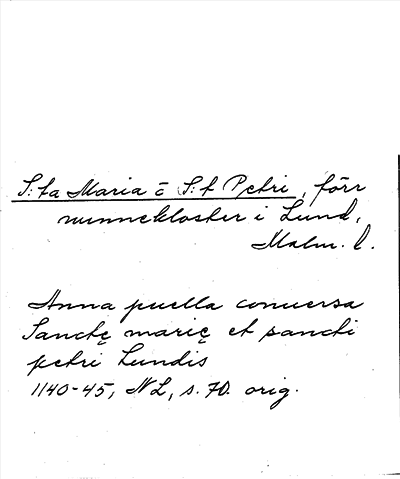 S:ta Maria o S:t Petri, förr
nunnekloster i Lund,
Malm. l.
Anna puella conuersa
Sanctę marię et sancti
petri Lundis
1140-45, NL, s. 70. orig.